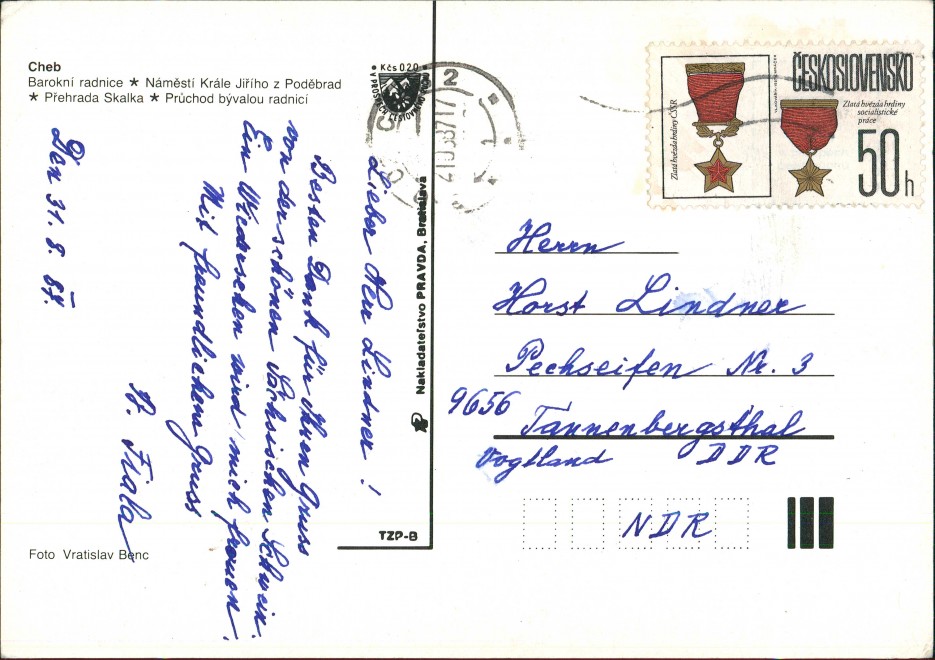 Cheb
Barokní radnice ★ Náměstí Krále Jiřího z Poděbrad
★ Přehrada Skalka ★ Průchod bývalou radnicí
Lieber Herr Lindner!
Besten Dank für Ihren Gruss
von der schönen Sächsischen Schweiz.
Ein Wiedersehen wird mich freuen.
Mit freundlichem Gruss
B. Fiala
Den 31. 8. 87.
Foto Vratislav Benc
Kčs 0,20
Nakladateľstvo PRAVDA, Bratislava
TZP-B
ČESKOSLOVENSKO
50h
Zlatá hvězda hrdiny ČSSR
Zlatá hvězda hrdiny
socialistické
práce
Herrn
Horst Lindner
Pechseifen Nr. 3
9656 Tannenbergsthal
Vogtland DDR
NDR